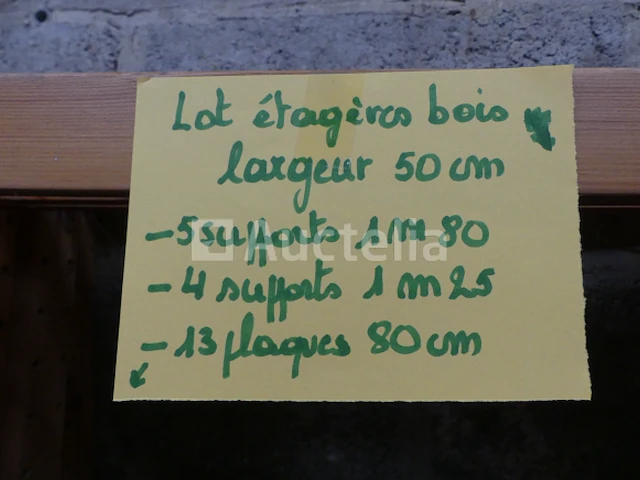 Lot étagères bois
largeur 50 cm
- 5 supports 1 m 80
- 4 supports 1 m 25
- 13 plaques 80 cm
Auctelia